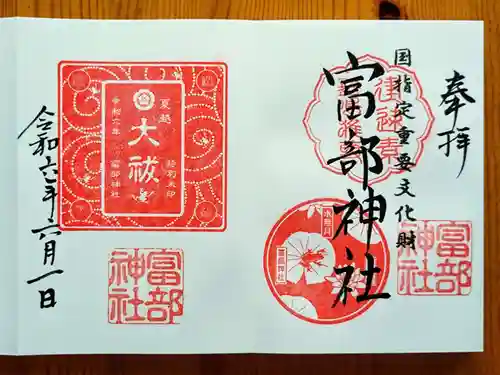 奉拝
国指定重要文化財
富部神社
富部神社
水無月
富部神社
夏越
大祓
特別朱印
令和六年
富部神社
富部神社
令和六年六月一日